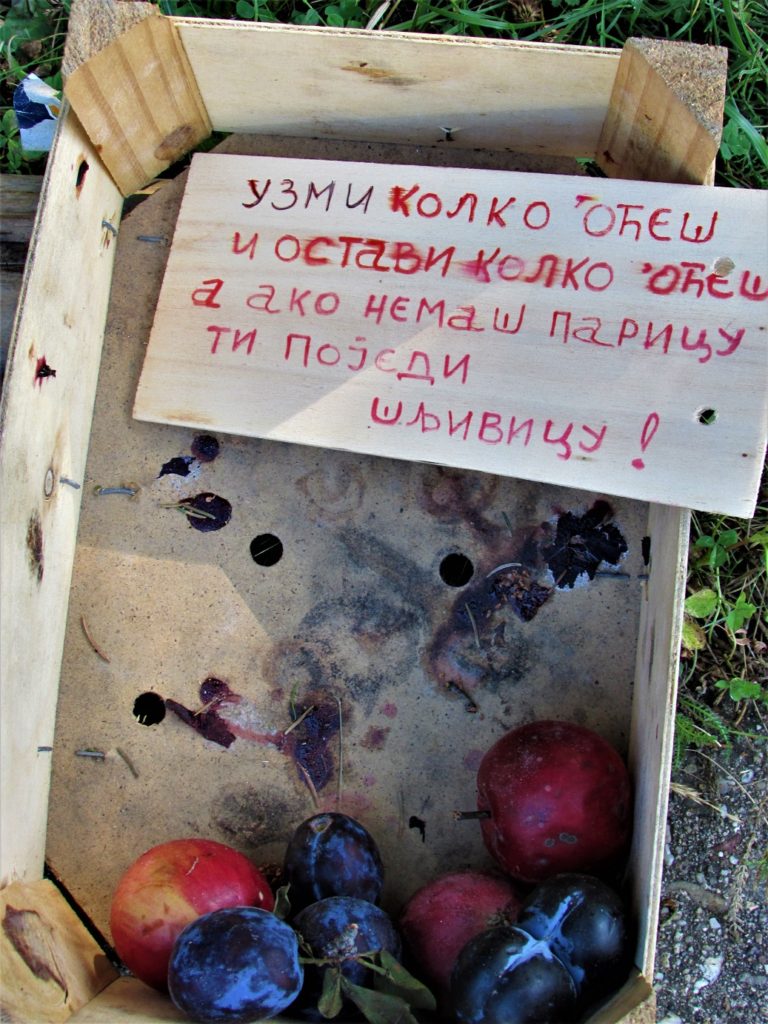 узми колко 'оћеш
и остави колко 'оћеш
а ако немаш парицу
ти поједи
шљивицу!